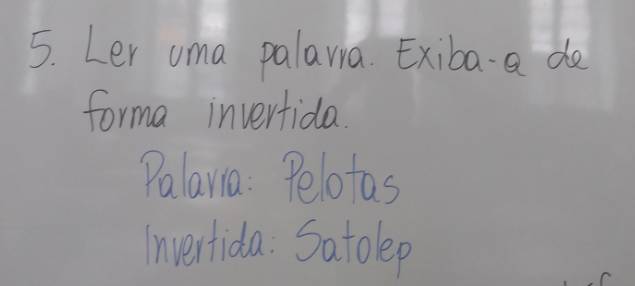 5. Ler uma palavra. Exiba-a de
forma invertida.
Palavra: Pelotas
Invertida: Satolep